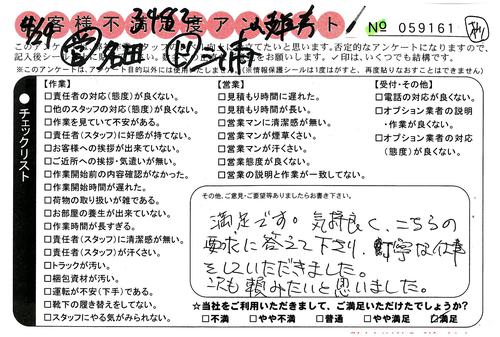 お客様不満足度アンケート
No 059161
記入後シールに
※このアンケートは、アンケート目的以外には使用いたしません。(※情報保護シールは1度がすと、再度貼りなおすことはできません)
●チェックリスト
【作業】
□責任者の対応(態度)が良くない。
□他のスタッフの対応(態度)が良くない。
□作業を見ていて不安がある。
□責任者(スタッフ)に好感が持てない。
□お客様への挨拶が出来ていない。
□ご近所への挨拶・気遣いが無い。
□作業開始前の内容確認がなかった。
□作業開始時間が遅れた。
□荷物の取り扱いが雑である。
□お部屋の養生が出来ていない。
□作業時間が長すぎる。
□責任者(スタッフ)に清潔感が無い。
□責任者(スタッフ)が汗くさい。
□トラックが汚い。
□梱包資材が汚い。
□運転が不安(下手)である。
□靴下の履き替えをしてない。
□スタッフにやる気がみられない。
【営業】
□見積もり時間に遅れた。
□見積もり時間が長い。
□営業マンに清潔感が無い。
□営業マンが煙草くさい。
□営業マンが汗くさい。
□営業態度が良くない。
□営業の説明と作業が一致してない。
【受付・その他】
□電話の対応が良くない。
□オプション業者の説明
・作業が良くない。
□オプション業者の対応
(態度)が良くない。
その他、ご意見・ご要望等ありましたらお書き下さい。
満足です。気持良く、こちらの
要求に答えて下さり、丁寧な仕事
をしていただきました。
次も頼みたいと思いました。
☆当社をご利用いただきまして、ご満足いただけてでしょうか?
□不満 □やや不満 □普通 □やや満足 ☑満足